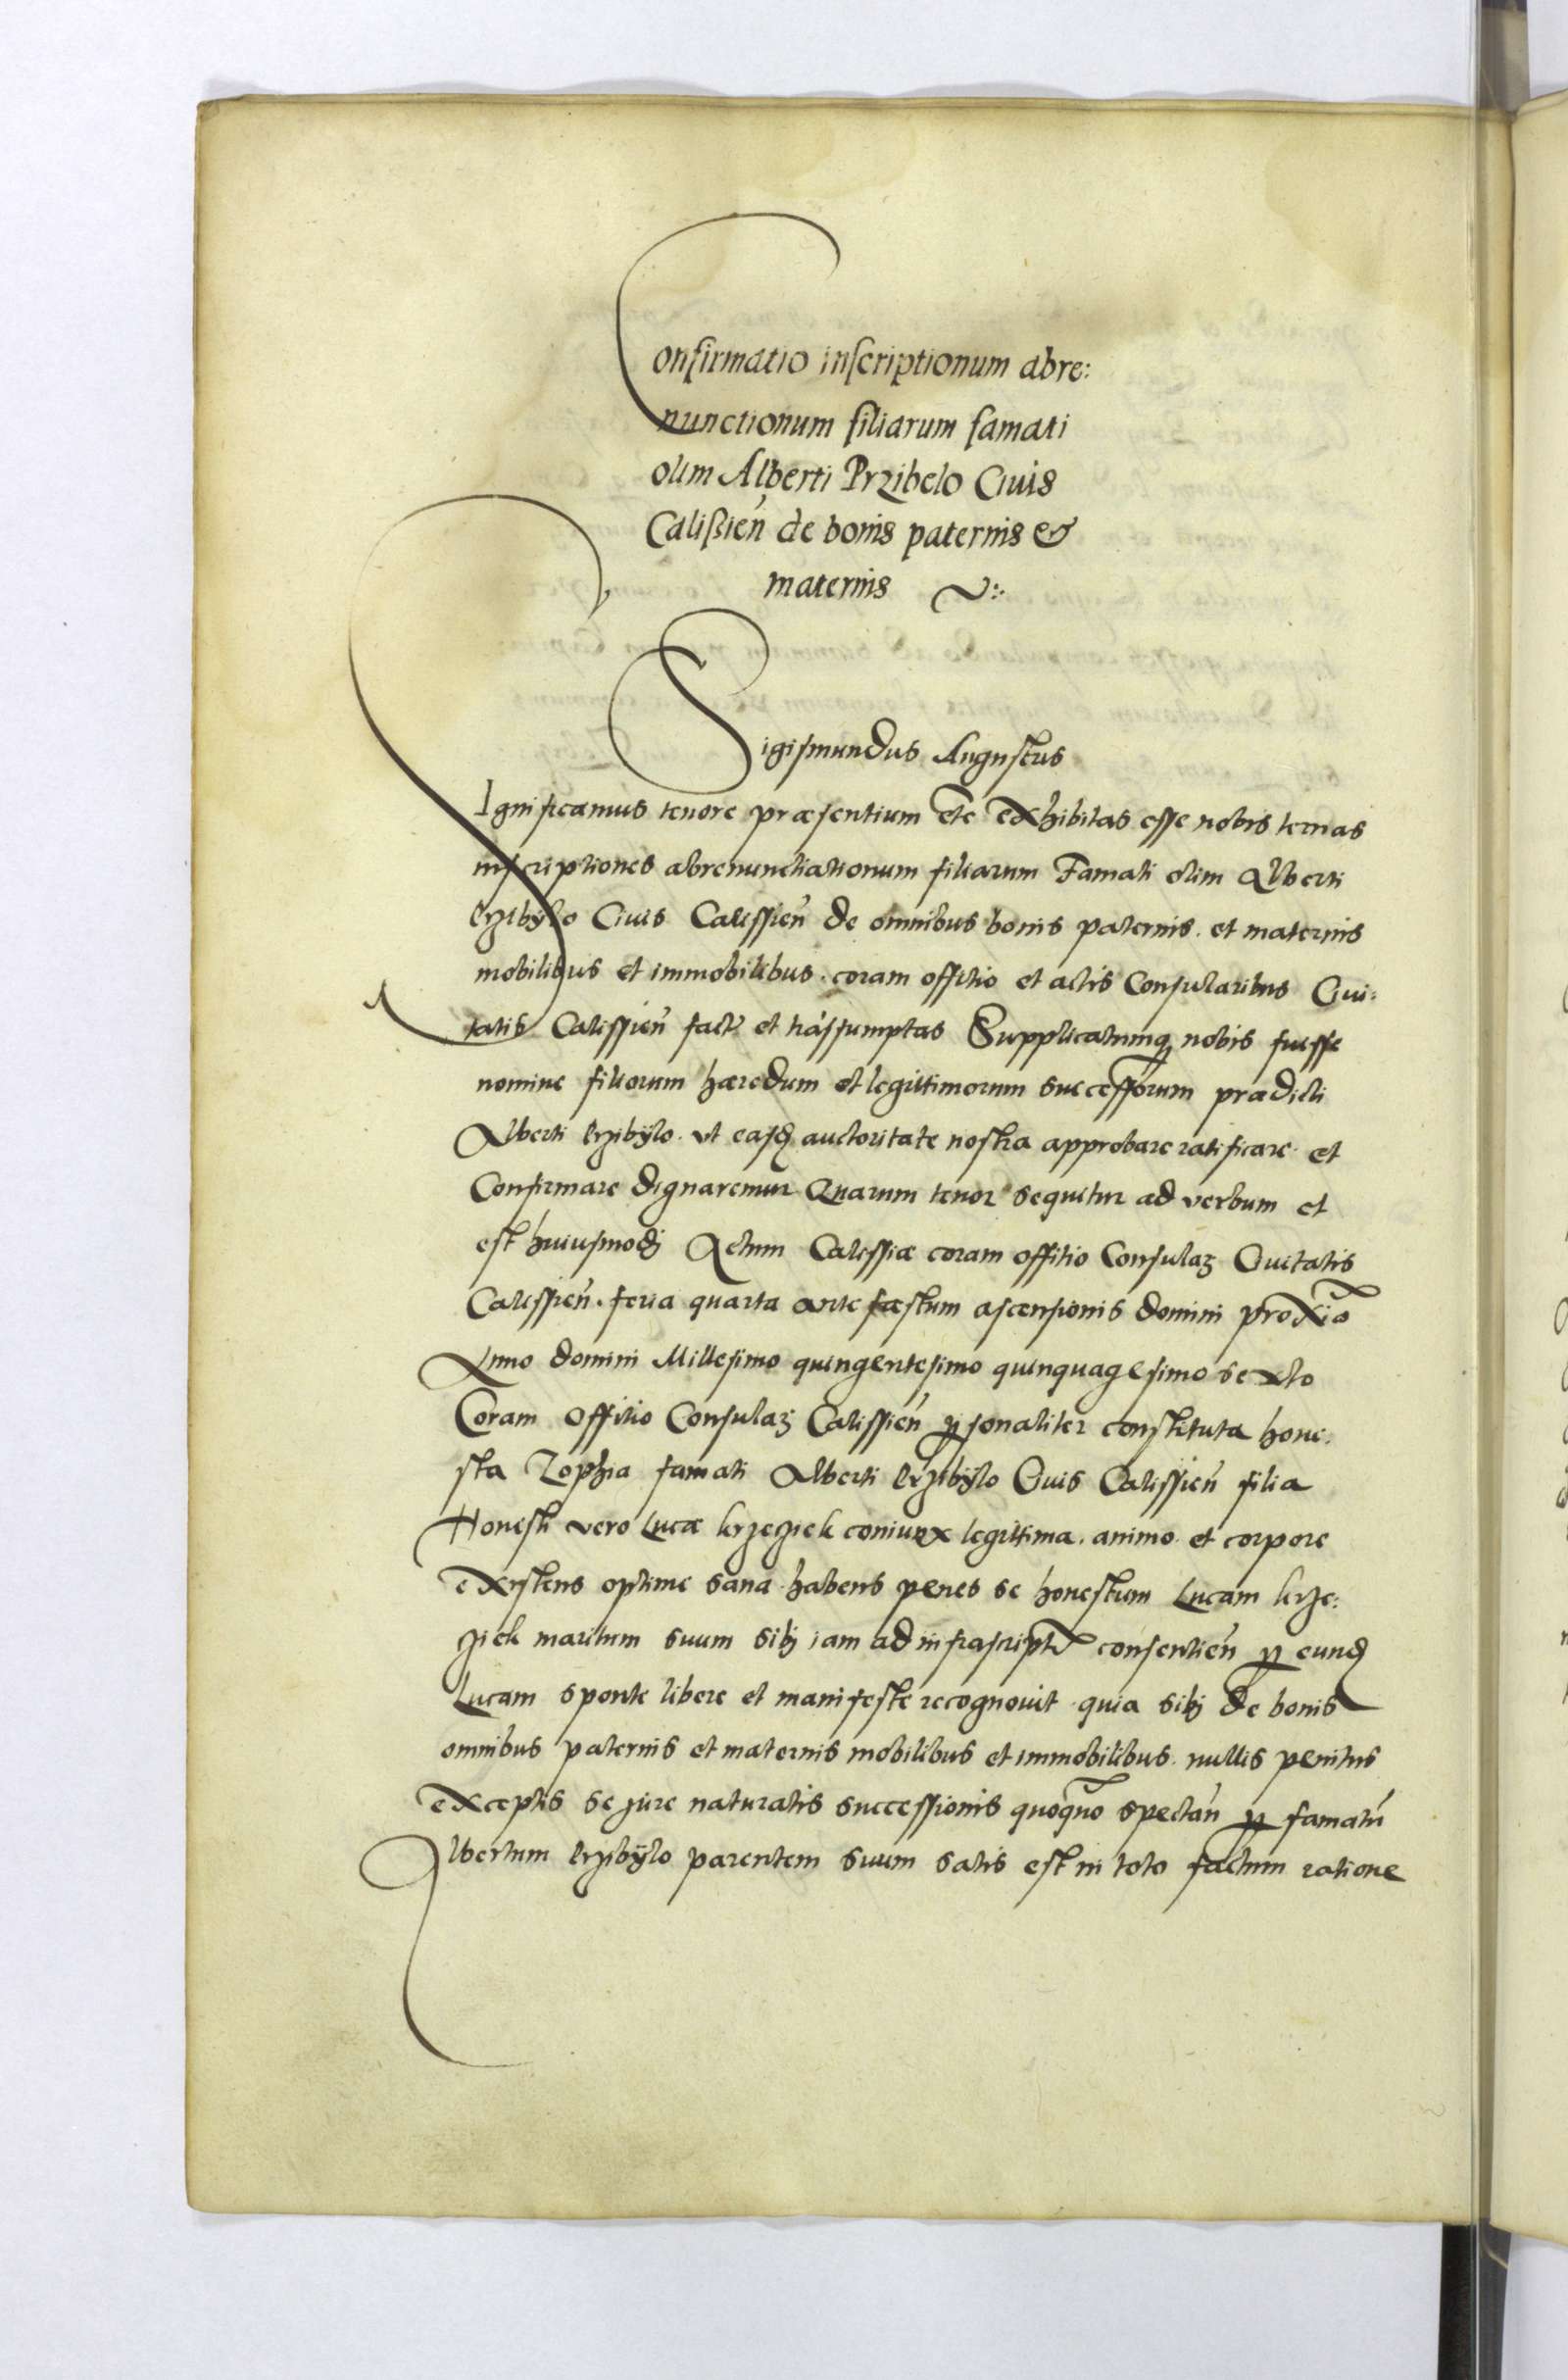 Confirmatio inscriptionum abre:
nunctionum filiarum famati
olim Alberti Przibelo Ciuis
Calißień de bonis paternis &
maternis
Sigismundus Augustus
Significamus tenore præsentium etc exhibitas esse nobis ternas
inscriptiones abrenunctiationum filiarum Famati olim Alberti
Przibÿlo Ciuis Calissień de omnibus bonis paternis et maternis
mobilibus et immobilibus coram offitio et actis Consularibus Ciui:
tatis Calissień fact et Supplicatumq nobis fuisse
nomine filiorum hæredum et legittimorum successorum prædicti
Alberti Przibÿlo vt easd auctoritate nostra approbare ratificare et
Confirmare dignaremur Quarum tenor sequitur ad verbum et
est huiusmodj Actum Calissiæ coram offitio Consulaz Ciuitatis
Calissień feria quarta ante fæstum ascensionis domini proxio
Anno domini Millesimo quingentesimo quinquagesimo sexto
Coram offitio Consulaz Calissień psonaliter constituta hone:
sta Zophia famati Alberti Przibÿlo Ciuis Calissień filia
Honesti vero Lucæ krzeziek coniunx legittima animo et corpore
existens optime sana habens penes se honestum Lucam krze:
ziek maritum suum sibj iam ad infrascript consentień p eund
Lucam sponte libere et manifeste recognouit quia sibj de bonis
omnibus paternis et maternis mobilibus et immobilibus nullis penitus
exceptis se jure naturalis successionis quoquo spectań p famatu
Albertum Przibÿlo parentem suum satis est in toto factum ratione